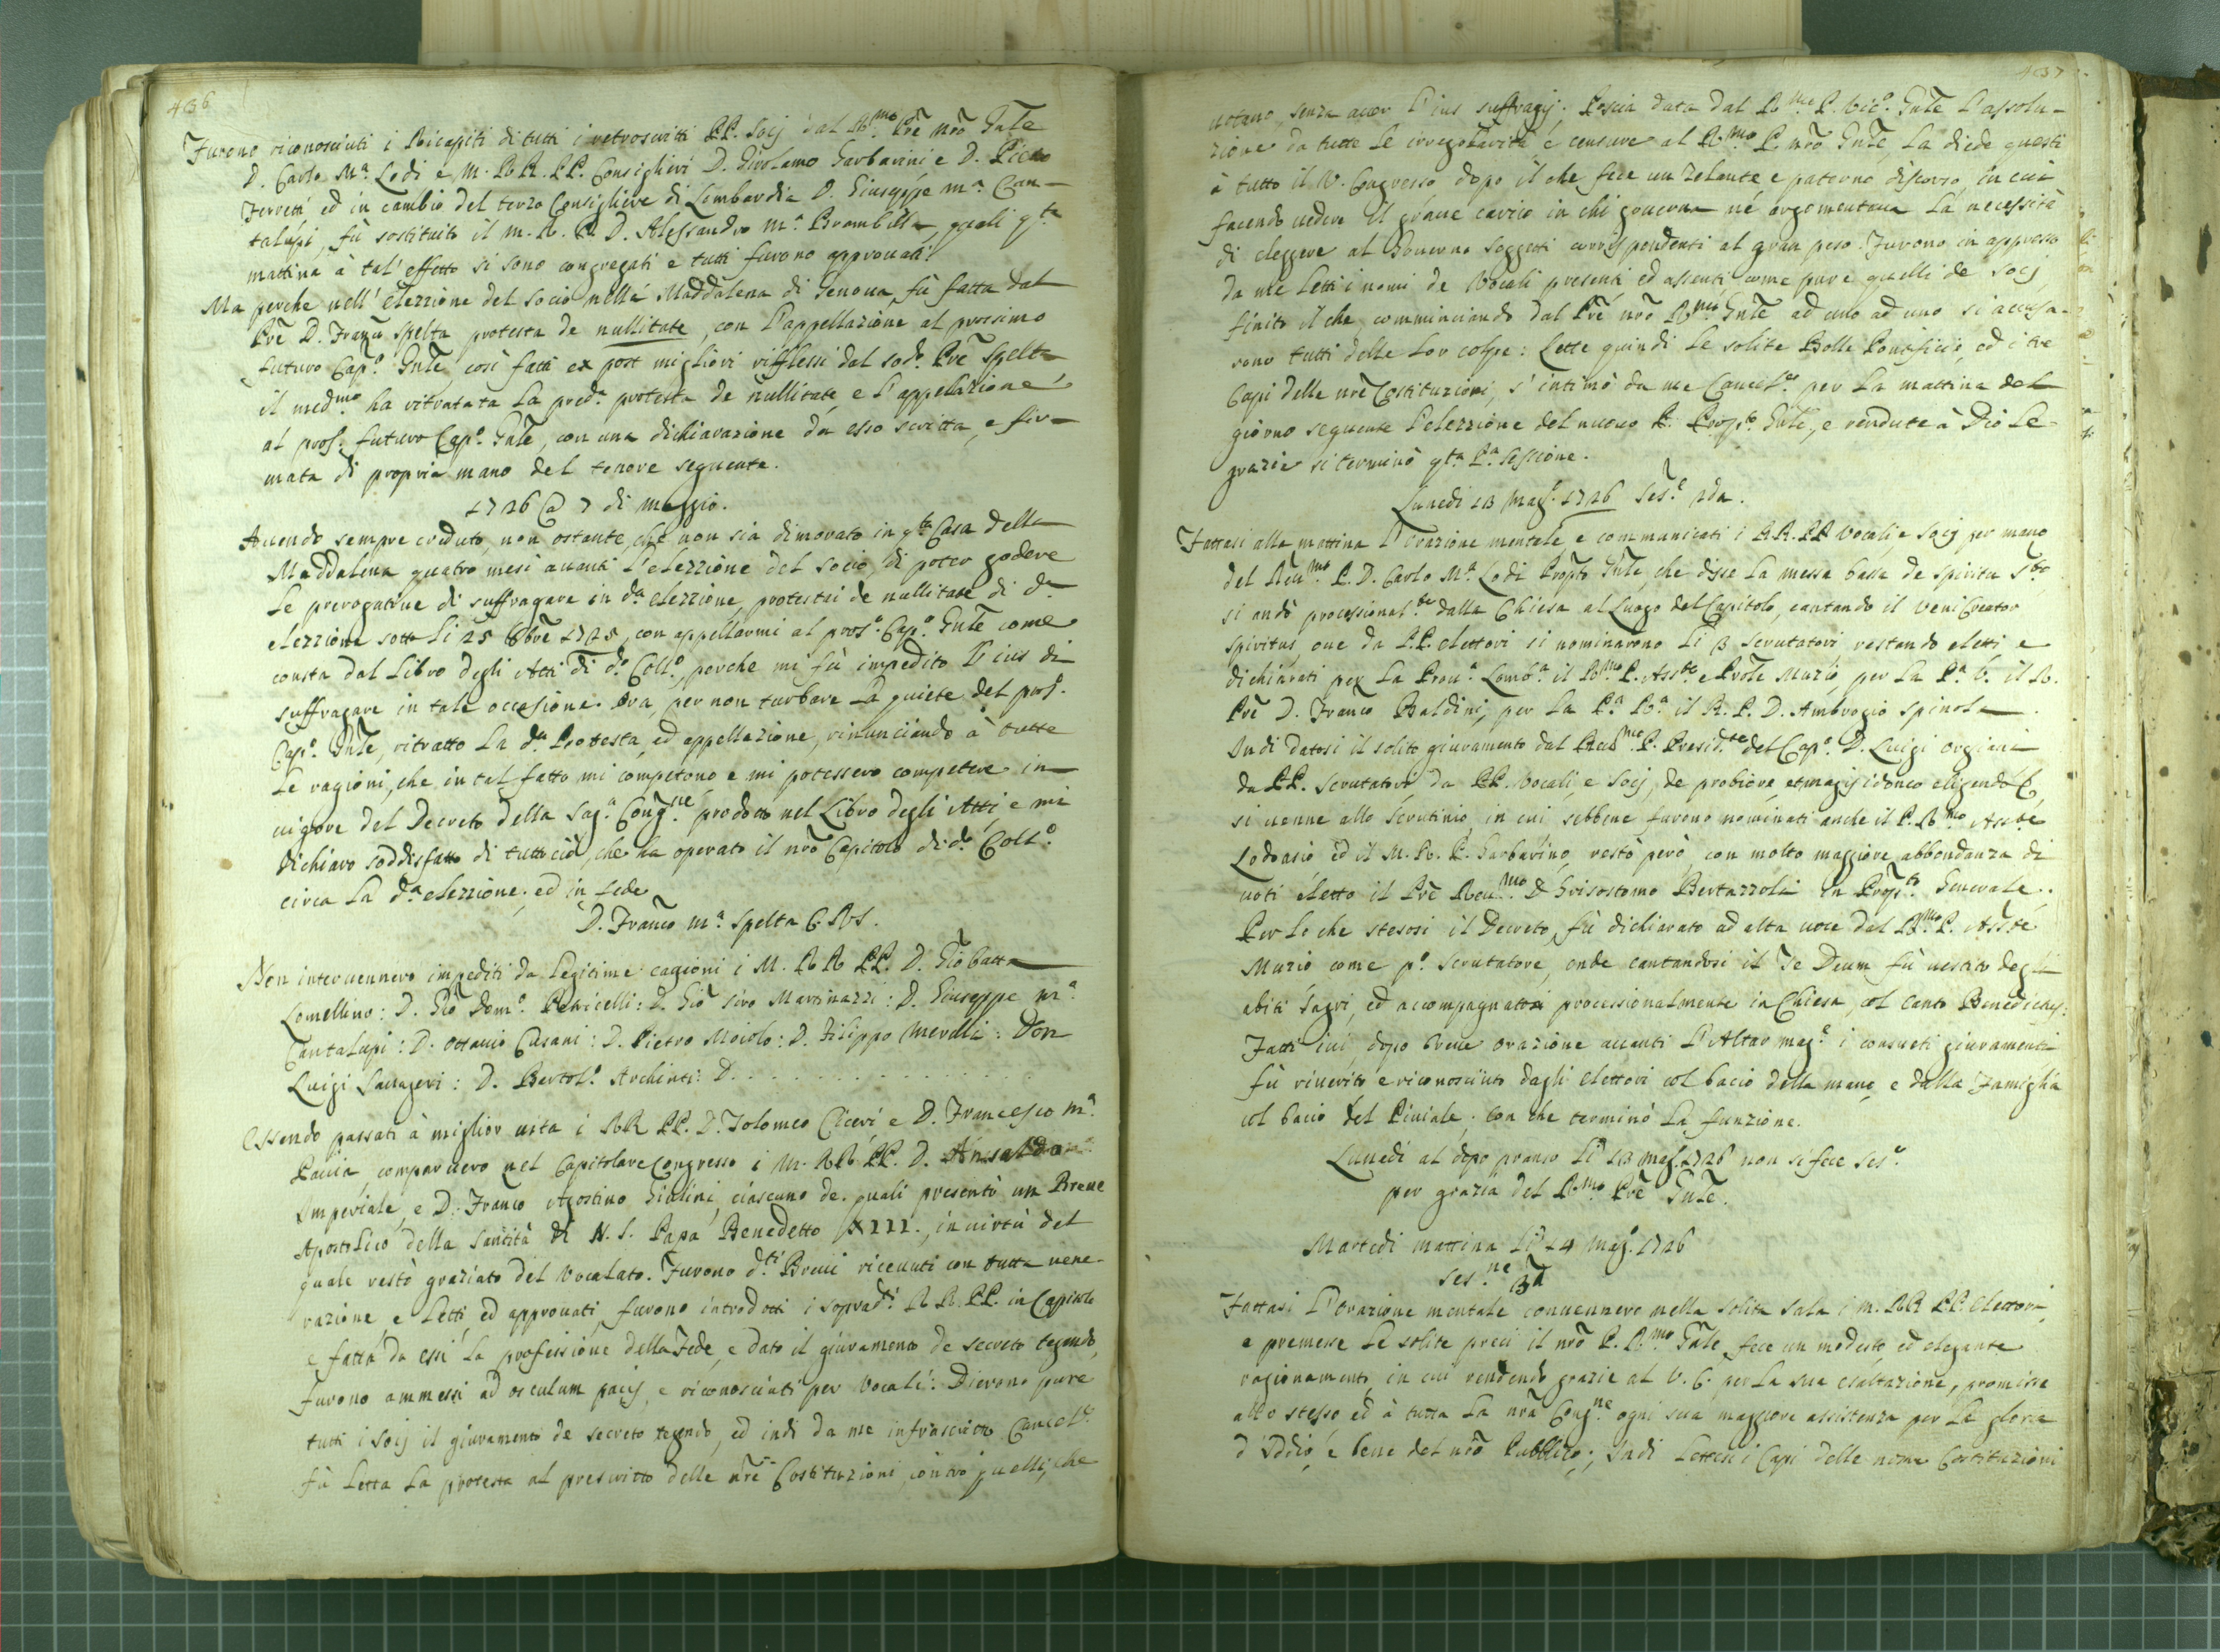 436
Furono riconosciuti i Ricapiti di tutti i retroscritti PP. Socij dal R.mo Prē nrō Gnle
D. Carlo M.a Lodi e M. RR. PP. Consiglieri D. Girolamo Garbarini e D. Pietro
Ferreti ed in cambio del terzo Consigliere di Lombardia D. Giuseppe M.a Can-
talupi, fù sostituito il M. R. P. D. Alessandro M.a Brambilla, quali q.ta
mattina à tal' effetto si sono congregati e tutti furono approuati.
Ma perche nell' elezzione del socio nella Maddalena di Genoua fù fatta dal
Prē D. Franco Spelta protesta de nullitate, con l'appellazione al prossimo
futuro Cap.o Gnle, così fatti ex post migliori rifflessi dal sod.o Prē Spelta
il med.mo ha ritratata la pred.a protesta de nullitate e l'appellazione
al pros.o futuro Cap.o Gnle, con una dichiarazione da esso scritta, e fir-
mata di propria mano del tenore seguente.
1726 @ 7 di Maggio.
Auendo sempre creduto, non ostante, che non sia dimorato in q.ta Casa della
Maddalena quatro mesi auanti l'elezzione del socio, di poter godere
le prerogatiue di suffragare in d.a elezzione, protestai de nullitate di d.a
elezzione sotto li 25 8bre 1725, con appellarmi al pros.o Cap.o Gnle come
consta dal Libro degli Atti di d.o Coll.o, perche mi fù impedito l'ius di
suffragare in tale occasione. Ora, per non turbare la quiete del pros.o
Cap.o Gnle, ritratto la d.a Protesta, ed appellazione, rinunciando à tutte
le ragioni, che in tal fatto mi competono e mi potessero competere in
uigore del Decreto della Sag.a Cong.ne prodotto nel Libro degli Atti, e mi
dichiaro soddisfatto di tutto ciò, che ha operato il nrō Capitolo di d.o Coll.o
circa la d.a elezzione; ed in fede
D. Franco M.a Spelta C.R.S.
Non interuennero impediti da legitime cagioni i M. RR PP. D. Gio Batta
Lomellino: D. Gio Dom.o Petricelli: D. Gio Siro Martinazzi: D. Giuseppe M.a
Cantalupi: D. Ottauio Cusani: D. Pietro Moiolo: D. Filippo Merulli: Don
Luigi Sauageri: D. Bertol.o Archinti: D. . . . . . . .
Essendo passati à miglior uita i RR PP. D. Tolomeo Ciceri e D. Francesco M.a
Pauia, comparuero nel Capitolare Congresso i M. RR PP. D. Ansaldo
Imperiale, e D. Franco Agostino Giulini, ciascuno de quali presentò un Breue
Apostolico della Santità di N. S. Papa Benedetto XIII., in uirtù del
quale restò graziato del Vocalato. Furono d.ti Breui riceuuti con tutta uene-
razione, e letti, ed approuati, furono introdotti i soprad.ti RR. PP. in Capitolo
e fatta da essi la professione della Fede, e dato il giuramento de secreto tegendo,
furono ammessi ad osculum pacis, e riconosciuti per Vocali. Dierono pure
tutti i socij il giuramento de secreto tegendo, ed indi da me infrascritto Cancel.re
fù letta la protesta al prescritto delle nrē Costituzioni, contro quelli, che
437
uotano, senza auer l'ius suffragij. Poscia data dal R.mo P. Vic.o Gnle l'assolu-
zione da tutte le irregolarità e censure al R.mo P. nrō Gnle, la diede questi
à tutto il V. Congresso dopo il che fece un zelante e paterno discorso, in cui
facendo uedere il graue carico in chi gouerna ne argomentaua la necessità
di eleggere al Gouerno soggetti corrispondenti al gran peso. Furono in appresso
da me letti i nomi de Vocali presenti ed assenti come pure quelli de socij
finito il che, comminciando dal Prē nrō R.mo Gnle ad uno ad uno si accusa-
rono tutti delle lor colpe: Lette quindi le solite Bolle Pontificie, ed i tre
Capi delle nrē Costituzioni, s'intimò da me Cancel.re per la mattina del
giorno seguente l'elezzione del nuouo P. Prop.to Gnle, e rendute à Dio le
grazie si terminò q.ta P.a sessione.
Lunedi 13 Mag.o 1726 Ses.e 2da.
Fattasi alla mattina l'orazione mentale e communicati i RR. PP Vocali, e socij per mano
del Reu.mo P. D. Carlo M.a Lodi Propto Gnle, che disse la messa bassa de Spiritu S.to
si andò processional.te dalla Chiesa al luogo del Capitolo, cantando il Veni Creator
Spiritus, oue da P.P. elettori si nominarono li 3 scrutatori, restando eletti e
dichiarati per la Prou.a Lomb.a il R.mo P. Ass.te e Prōle Muzio, per la P.a V. il R.
Prē D. Franco Baldini, per la P.a R.a il R. P. D. Ambrogio Spinola.
Indi datosi il solito giuramento dal Reu.mo P. Presid.te del Cap.o D. Luigi Orgiani
da PP. Scrutatori da PP. Vocali, e socij, de probiore, et magis idoneo eligendo &,
si uenne allo scrutinio, in cui sebbene furono nominati anche il P. R.mo Ass.te
Lodoasio ed il M. R. P. Garbarino, restò però con molto maggiore abbondanza di
uoti eletto il Prē Reu.mo D Grisostomo Bertazzoli in Prop.to Generale.
Per lo che stesosi il Decreto, fù dichiarato ad alta uoce dal R.mo P. Ass.te
Muzio come p.o scrutatore, onde cantandosi il Te Deum fù uestito degli
abiti sagri, ed accompagnato processionalmente in Chiesa, col canto Benedictus:
Fatti iui, dopo breue orazione auanti l'Altar mag.e i consueti giuramenti
fù riuerito e riconosciuto dagli elettori col bacio della mano e dalla Famiglia
col bacio del Piuiale; con che terminò la funzione.
Lunedi al dopo pranso li 13 Mag. 1726 non si fece ses.e
per grazia del R.mo Prē Gnle.
Martedi mattina li 14 Mag.o 1726
Ses.ne 3a
Fattasi l'orazione mentale conuennero nella solita sala i M. RR PP. Elettori,
e premesse le solite preci il nrō P. R.mo Gnle fece un modesto, ed elegante
ragionamento, in cui rendendo grazie al V. C. per la sua esaltazione, promisse
allo stesso ed à tutta la nrā Cong.ne ogni sua maggiore assistenza per la gloria
d'Iddio, e bene del nrō Pubblico; Indi lettesi i Capi delle nostre Costituzioni